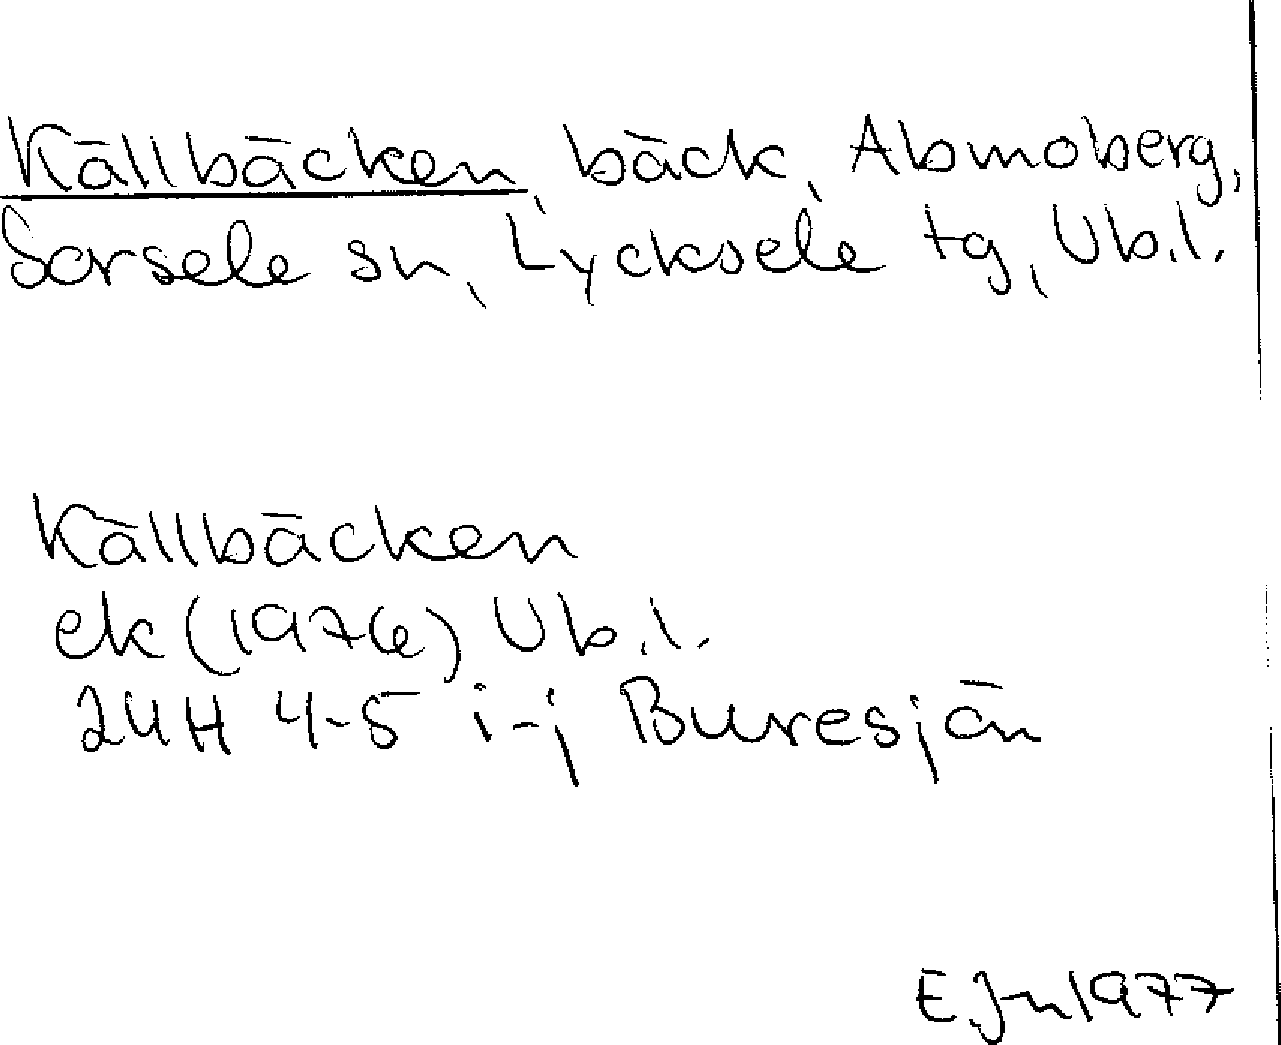 Källbäcken, bäck, Abmoberg,
Sorsele sn, Lycksele tg, Vb.l.
Källbäcken
ek (1976) Vb.l.
24H 4-5 i-j Buresjön
E.Jn 1977